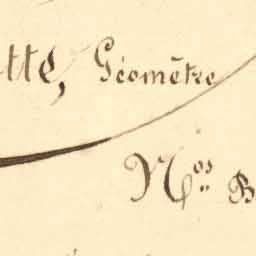 tte, Géomètre
Nos B